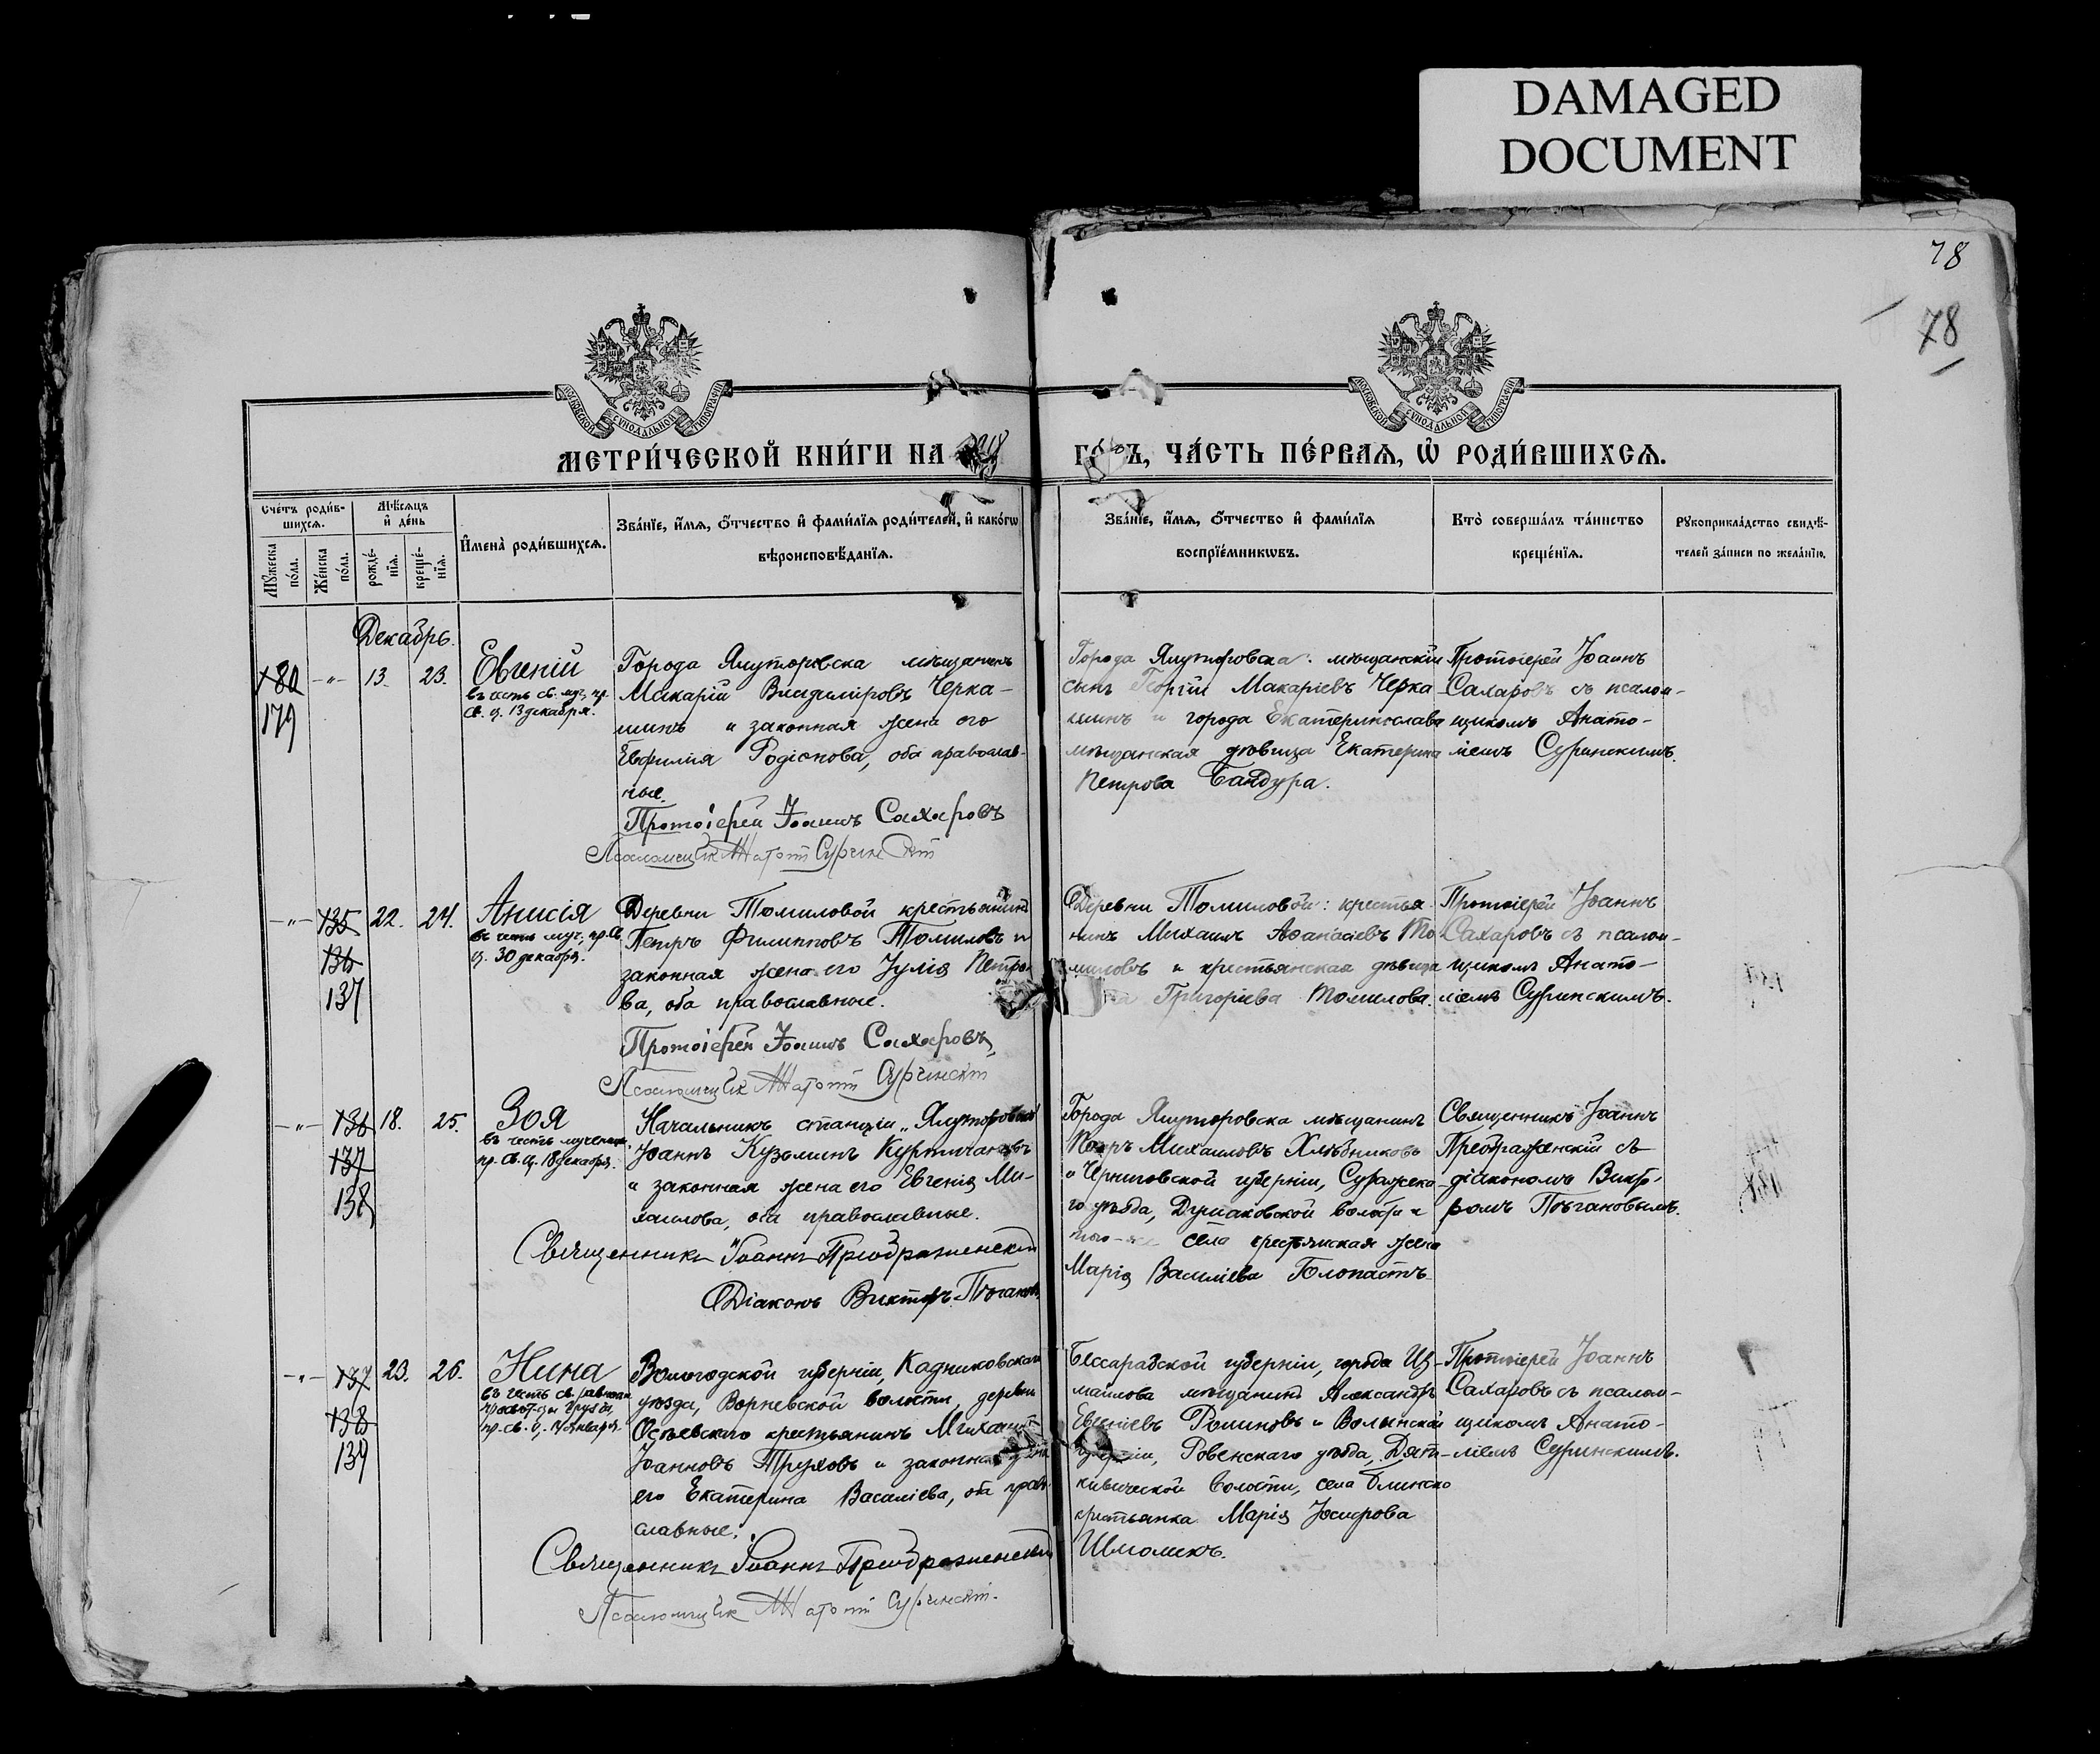 DAMAGED
DOCUMENT
78
78
МОСКОВСКОЙ СѴНОДАЛЬНОЙ ТИПОГРАФІИ
МОСКОВСКОЙ СѴНОДАЛЬНОЙ ТИПОГРАФІИ
МЕТРИ́ЧЕСКОЙ КНИ́ГИ НА
ГО́ДЪ, ЧА́СТЬ ПЕ́РВАѦ, Ѡ҆ РОДИ́ВШИХСѦ.
Сче́тъ роди́в-
шихсѧ.
Мѣ́сѧцъ
и҆ де́нь
Мꙋ́жеска
по́ла.
Же́нска
по́ла.
рожде́-
нїѧ.
креще́-
нїѧ.
И҆мена̀ роди́вшихсѧ.
Зва́нїе, и҆́мѧ, ѻ҆́тчество и҆ фами́лїѧ роди́телей, и҆ како́гѡ
вѣроисповѣ́данїѧ.
Зва́нїе, и҆́мѧ, ѻ҆́тчество и҆ фами́лїѧ
воспрїе́мникѡвъ.
Кто̀ соверша́лъ та́инство
креще́нїѧ.
Рꙋкоприкла́дство свидѣ́-
телей за́писи по жела́нїю.
Декабрь.
180 -"- 13. 23.
179
Евгеній
въ честь св. муч. пр.
св. ц. 13 декабря.
Города Ялуторовска мѣщанинъ
Макарій Владиміровъ Черка-
шинъ и законная жена его
Евфилія Родіонова, оба православ-
ные.
Протоіерей Іоаннъ Сахаровъ
Псаломщик Анатолій Суринскій
Города Ялуторовска: мѣщанскій
сынъ Георгій Макаріевъ Черка
шинъ и города Екатеринослава
мѣщанская дѣвица Екатерина
Петрова Бандура.
Протоіерей Іоаннъ
Сахаровъ съ псалом-
щикомъ Анато-
ліемъ Суринскимъ.
-"- 135 22. 24.
136
137
Анисія
въ честь муч., пр. св.
ц. 30 декабря.
Деревни Томиловой крестьянинъ
Петръ Филипповъ Томиловъ и
законная жена его Іулія Петро
ва, оба православные.
Протоіерей Іоаннъ Сахаровъ,
Псаломщик Анатолій Суринскій
Деревни Томиловой: крестья
нинъ Михаилъ Аѳанасіевъ То
миловъ и крестьянская дѣвица
Григоріева Томилова.
Протоіерей Іоаннъ
Сахаровъ съ псалом-
щикомъ Анато-
ліемъ Суринскимъ.
-"- 136 18. 25.
137
138
Зоя
въ честь мученицы,
пр. св. ц. 18 декабря.
Начальникъ станціи „Ялуторовскъ"
Іоаннъ Кузьминъ
и законная жена его Евгенія Ми-
хаилова, оба православные.
Священникъ Іоаннъ Преображенскій
Діаконъ Викторъ Поганов
Города Ялуторовска мѣщанинъ
Петръ Михаиловъ Хлѣбниковъ
и Черниговской губерніи, Суражска
го уѣзда, Душаковской волости и
того-же села крестьянская жена
Марія Василіева Голопастъ.
Священникъ Іоаннъ
Преображенскій съ
діакономъ Викто-
ромъ Погановымъ.
-"- 137 23. 26.
138
139
Нина
въ честь св. равноап.
просвѣт-цы Грузіи,
пр. св. ц. 14 января.
Вологодской губерніи, Кадниковскаго
уѣзда, Ворневской волости, деревни
Осѣевскаго крестьянинъ Михаилъ
Іоанновъ Труховъ и законная жена
его Екатерина Василіева, оба право
славные.
Священникъ Іоаннъ Преображенскій
Псаломщик Анатолій Суринскій.
Бессарабской губерніи, города Из-
маилова мѣщанинъ Александръ
Евгеніевъ Роминовъ и Волынской
губерніи, Ровенскаго уѣзда, Дят-
кивической волости, села
крестьянка Марія Іосифова
Шмолекъ.
Протоіерей Іоаннъ
Сахаровъ съ псалом-
щикомъ Анато-
ліемъ Суринскимъ.